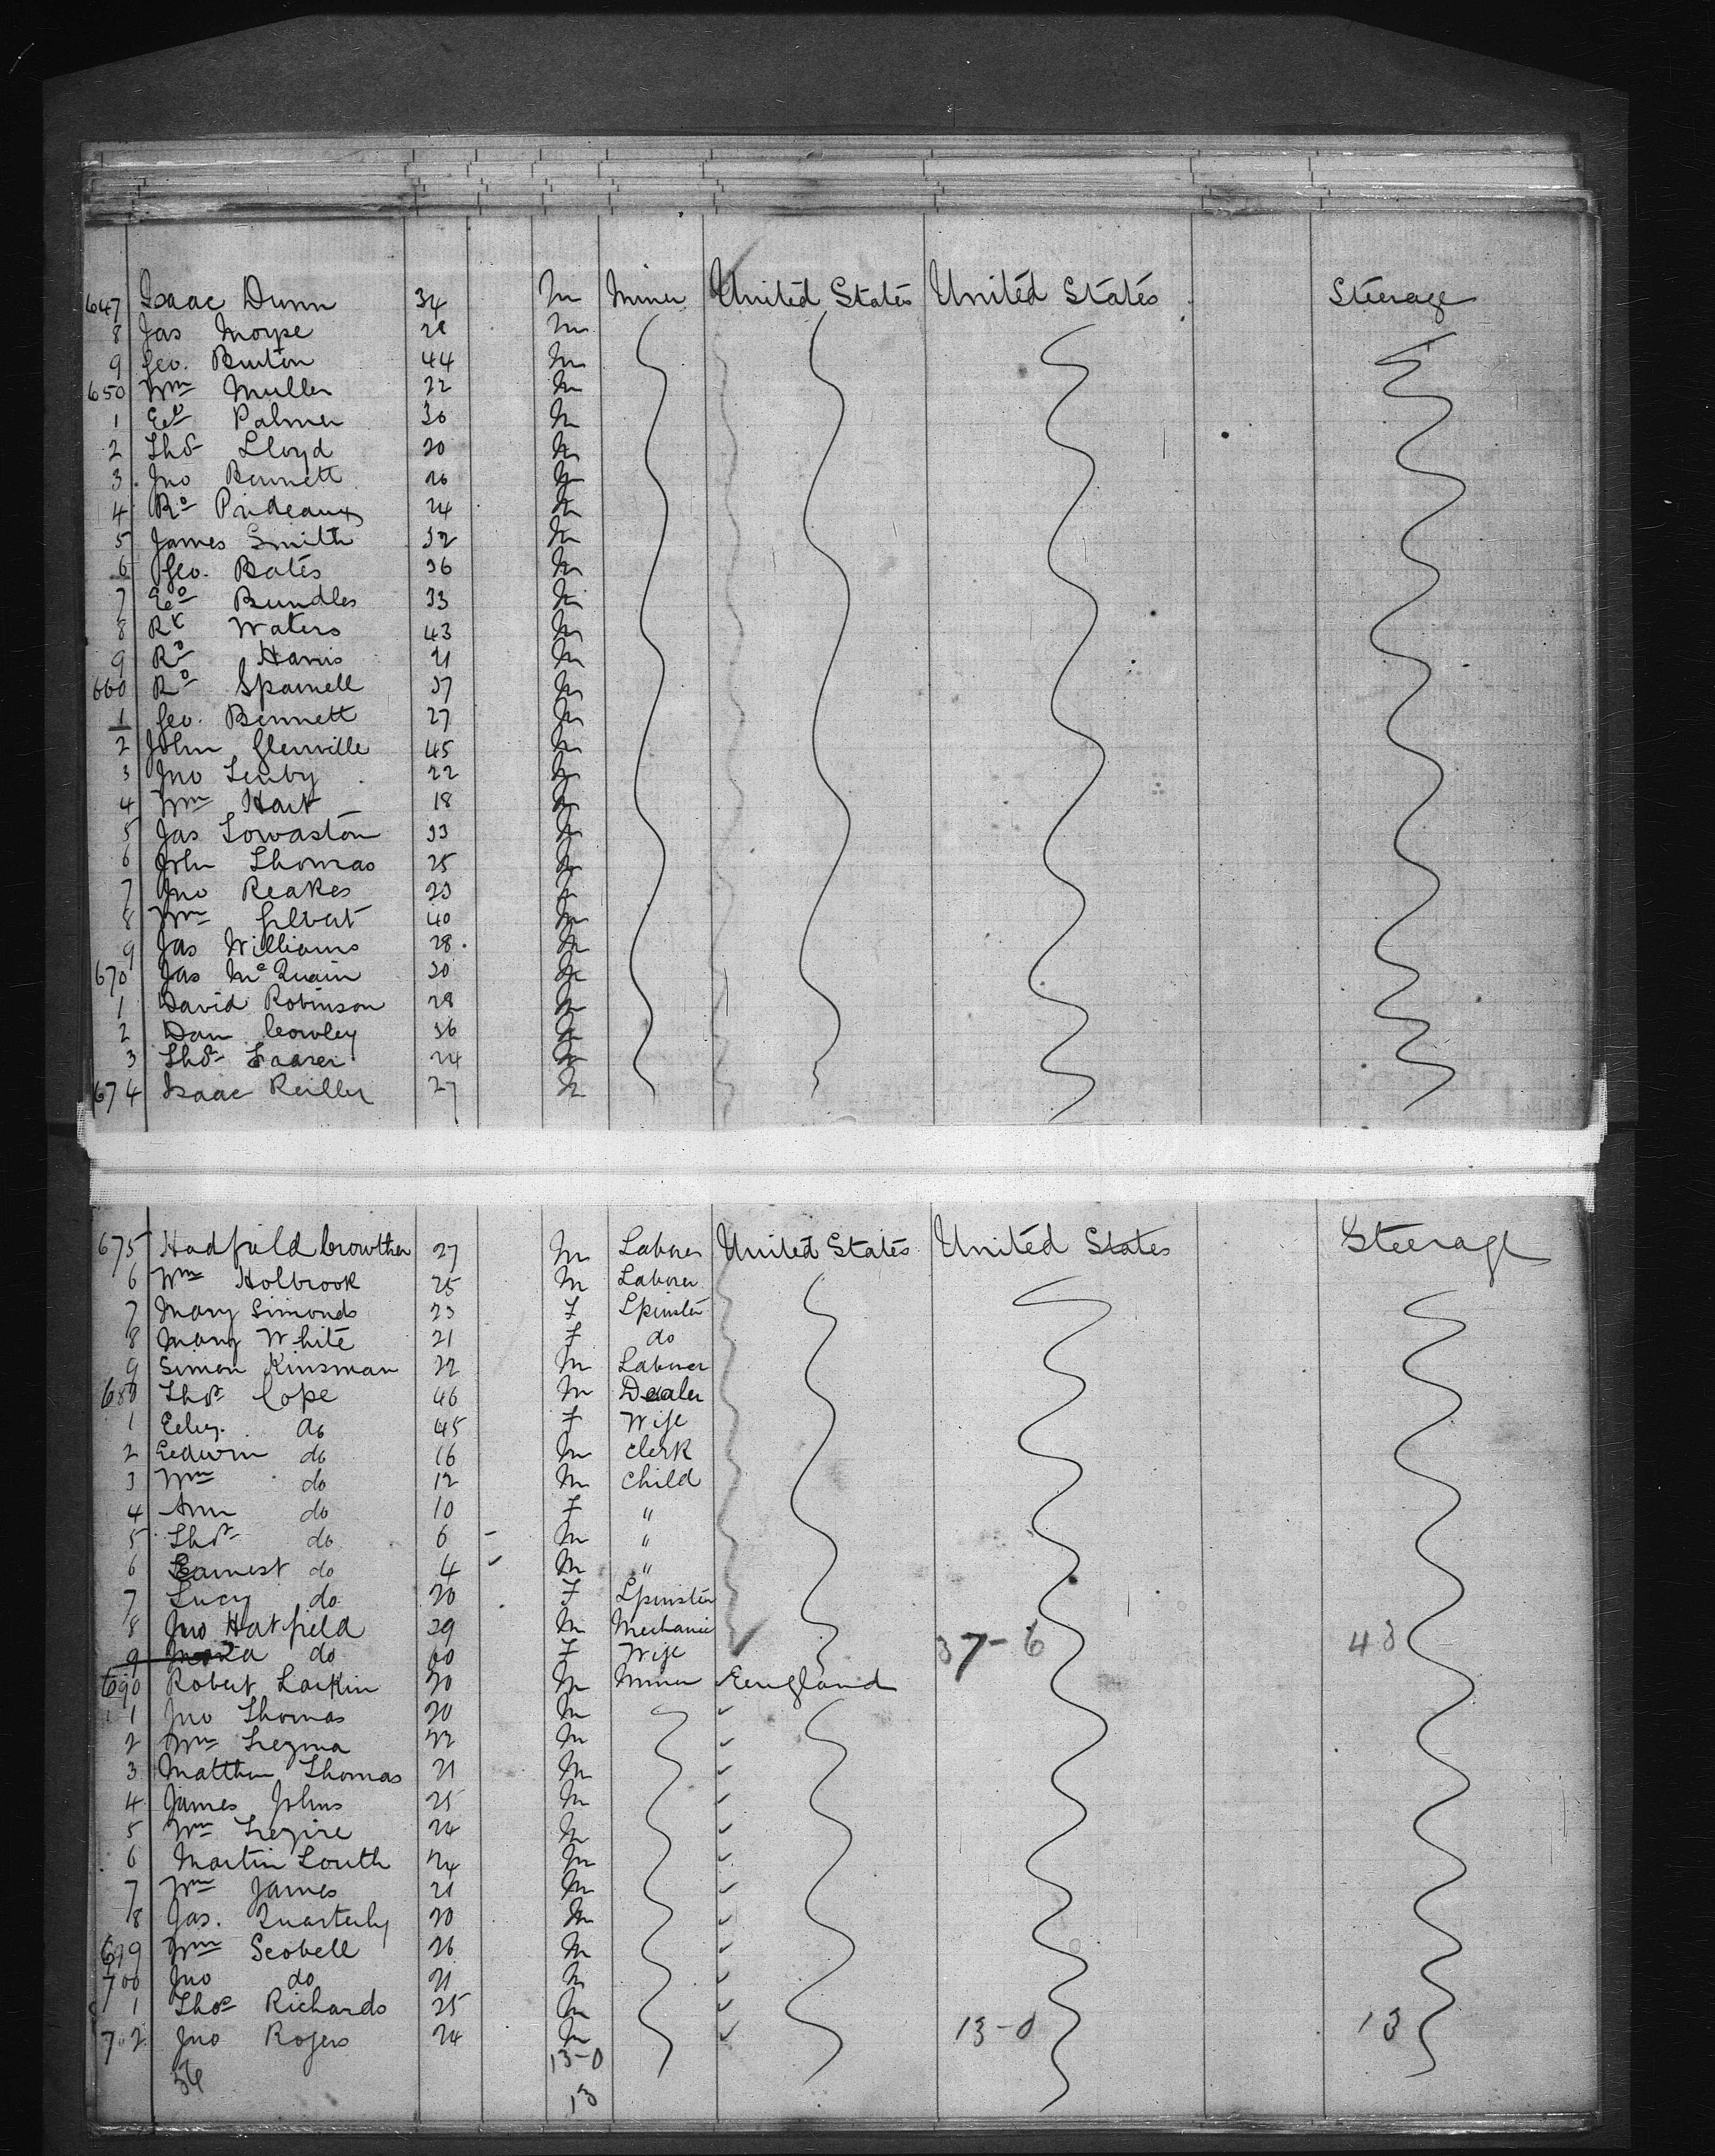 647 Isaac Dunn 34 M Miner United States United States Steerage
8 Jas Thorpe 28 M
9 Geo. Burton 44 M
650 Wm Muller 22 M
1 Ed Palmer 30 M
2 Thos Lloyd 20 M
3 Jno Bennett 26 M
4 Rd Prideaux 24 M
5 James Smith 32 M
6 Geo. Bates 36 M
7 Ed Bundles 33 M
8 Rt Waters 43 M
9 Rd Harris 21 M
660 Rd Sparnell 37 M
1 Geo. Bennett 27 M
2 John Glenville 45 M
3 Jno 22 M
4 Wm Hart 18 M
5 Jas Towaston 33 M
6 John Thomas 25 M
7 Jno Reakes 23 M
8 Wm Gilbert 40 M
9 Jas Williams 28 M
670 Jas McQuain 30 M
1 David Robinson 28 M
2 Dan Cowley 36 M
3 Thos 24 M
674 Isaac Reilley 27 M
675 Hadfield Crowther 27 M Laborer United States United States Steerage
6 Wm Holbrook 25 M Laborer
7 Mary Simonds 23 F Spinster
8 Mary White 21 F do
9 Simon Kinsman 22 M Laborer
680 Thos Cope 46 M Dealer
1 Do 45 F Wife
2 Edwin do 16 M Clerk
3 Wm do 12 M Child
4 Ann do 10 F "
5 Thos do 6 - M "
6 Earnest do 4 M "
7 Lucy do 20 F Spinster
8 Jno Hatfield 39 M Mechanic 37-6 43
9 do 60 F Wife
690 Robert Larkin 20 M Miner England
1 Jno Thomas 20 M
2 Wm Tregina 22 M
3 Matthew Thomas 21 M
4 James Johns 25 M
5 Wm Tregire 24 M
6 Martin South 24 M
7 Wm James 21 M
8 Jas. Quarterly 20 M
699 Wm Scobell 26 M
700 Jno do 21 M
1 Thos Richards 25 M
702 Jno Rogers 24 M 13-0 13
56 13-0
13